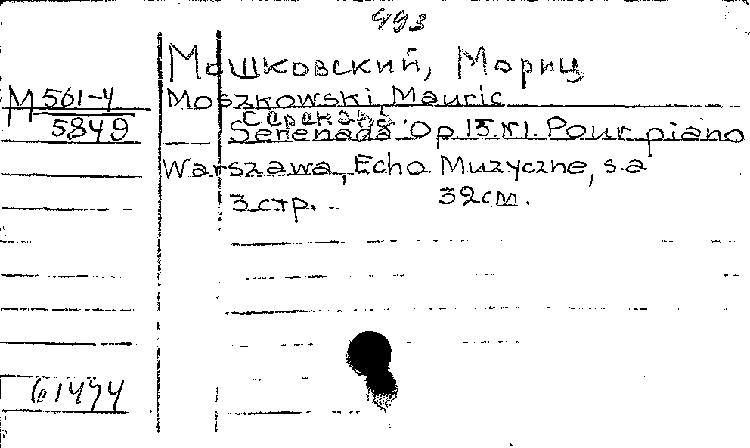 493
Мошковский, Мориц
М 561-4
Moszkowski, Mauric
Серенада
5849
Serenada Op 15 N1. Pour piano
Warszawa, Echo Muzyczne, s.a
3 стр. 32 см.
61494